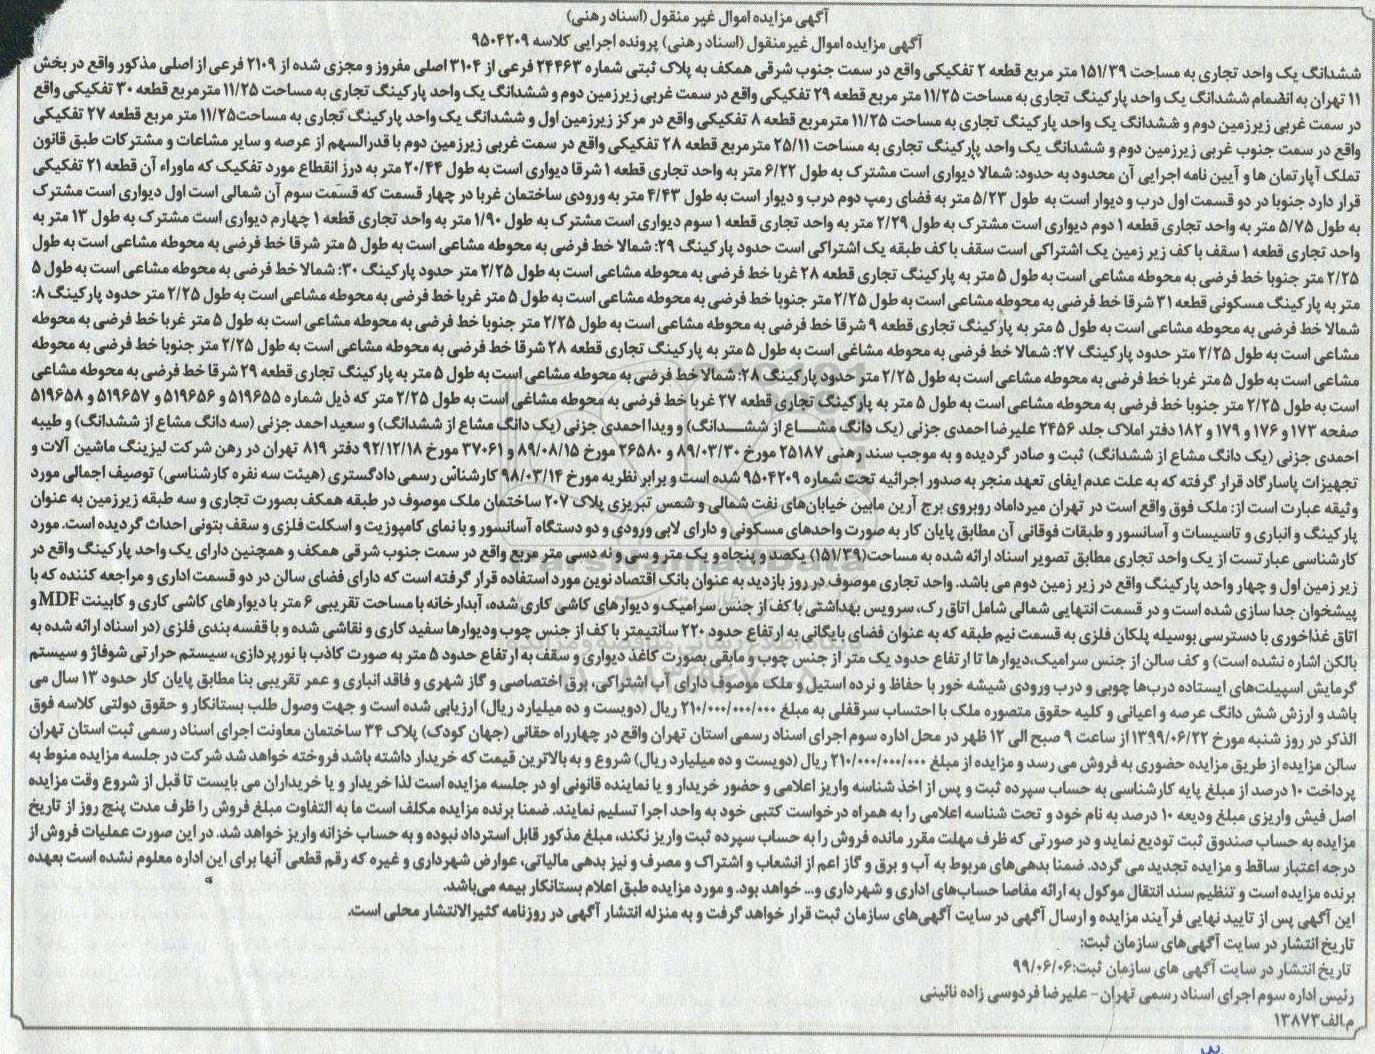 آگهی مزایده اموال غیر منقول (اسناد رهنی)
آگهی مزایده اموال غیرمنقول (اسناد رهنی) پرونده اجرایی کلاسه ۹۵۰۴۲۰۹
ششدانگ یک واحد تجاری به مساحت ۱۵۱/۳۹ متر مربع قطعه ۲ تفکیکی واقع در سمت جنوب شرقی همکف به پلاک ثبتی شماره ۲۴۴۶۳ فرعی از ۳۱۰۴ اصلی مفروز و مجزی شده از ۲۱۰۹ فرعی از اصلی مذکور واقع در بخش
۱۱ تهران به انضمام ششدانگ یک واحد پارکینگ تجاری به مساحت ۱۱/۲۵ متر مربع قطعه ۲۹ تفکیکی واقع در سمت غربی زیرزمین دوم و ششدانگ یک واحد پارکینگ تجاری به مساحت ۱۱/۲۵ مترمربع قطعه ۳۰ تفکیکی واقع
در سمت غربی زیرزمین دوم و ششدانگ یک واحد پارکینگ تجاری به مساحت ۱۱/۲۵ مترمربع قطعه ۸ تفکیکی واقع در مرکز زیرزمین اول و ششدانگ یک واحد پارکینگ تجاری به مساحت۱۱/۲۵ متر مربع قطعه ۲۷ تفکیکی
واقع در سمت جنوب غربی زیرزمین دوم و ششدانگ یک واحد پارکینگ تجاری به مساحت ۲۵/۱۱ مترمربع قطعه ۲۸ تفکیکی واقع در سمت غربی زیرزمین دوم با قدرالسهم از عرصه و سایر مشاعات و مشترکات طبق قانون
تملک آپارتمان ها و آیین نامه اجرایی آن محدود به حدود: شمالا دیواری است مشترک به طول ۶/۲۲ متر به واحد تجاری قطعه ۱ شرقا دیواری است به طول ۲۰/۴۴ متر به درز انقطاع مورد تفکیک که ماوراء آن قطعه ۲۱ تفکیکی
قرار دارد جنوبا در دو قسمت اول درب و دیوار است به طول ۵/۲۳ متر به فضای رمپ دوم درب و دیوار است به طول ۴/۴۳ متر به ورودی ساختمان غربا در چهار قسمت که قسمت سوم آن شمالی است اول دیواری است مشترک
به طول ۵/۷۵ متر به واحد تجاری قطعه ۱ دوم دیواری است مشترک به طول ۲/۲۹ متر به واحد تجاری قطعه ۱ سوم دیواری است مشترک به طول ۱/۹۰ متر به واحد تجاری قطعه ۱ چهارم دیواری است مشترک به طول ۱۳ متر به
واحد تجاری قطعه ۱ سقف با کف زیر زمین یک اشتراکی است سقف با کف طبقه یک اشتراکی است حدود پارکینگ ۲۹: شمالا خط فرضی به محوطه مشاعی است به طول ۵ متر شرقا خط فرضی به محوطه مشاعی است به طول
۲/۲۵ متر جنوبا خط فرضی به محوطه مشاعی است به طول ۵ متر به پارکینگ تجاری قطعه ۲۸ غربا خط فرضی به محوطه مشاعی است به طول ۲/۲۵ متر حدود پارکینگ ۳۰: شمالا خط فرضی به محوطه مشاعی است به طول ۵
متر به پارکینگ مسکونی قطعه ۳۱ شرقا خط فرضی به محوطه مشاعی است به طول ۲/۲۵ متر جنوبا خط فرضی به محوطه مشاعی است به طول ۵ متر غربا خط فرضی به محوطه مشاعی است به طول ۲/۲۵ متر حدود پارکینگ ۸:
شمالا خط فرضی به محوطه مشاعی است به طول ۵ متر به پارکینگ تجاری قطعه ۹ شرقا خط فرضی به محوطه مشاعی است به طول ۲/۲۵ متر جنوبا خط فرضی به محوطه مشاعی است به طول ۵ متر غربا خط فرضی به محوطه
مشاعی است به طول ۲/۲۵ متر حدود پارکینگ ۲۷: شمالا خط فرضی به محوطه مشاعی است به طول ۵ متر به پارکینگ تجاری قطعه ۲۸ شرقا خط فرضی به محوطه مشاعی است به طول ۲/۲۵ متر جنوبا خط فرضی به محوطه
مشاعی است به طول ۵ متر غربا خط فرضی به محوطه مشاعی است به طول ۲/۲۵ متر حدود پارکینگ ۲۸: شمالا خط فرضی به محوطه مشاعی است به طول ۵ متر به پارکینگ تجاری قطعه ۲۹ شرقا خط فرضی به محوطه مشاعی
است به طول ۲/۲۵ متر جنوبا خط فرضی به محوطه مشاعی است به طول ۵ متر به پارکینگ تجاری قطعه ۲۷ غربا خط فرضی به محوطه مشاعی است به طول ۲/۲۵ متر که ذیل شماره ۵۱۹۶۵۵ و ۵۱۹۶۵۶ و ۵۱۹۶۵۷ و ۵۱۹۶۵۸
صفحه ۱۷۳ و ۱۷۶ و ۱۷۹ و ۱۸۲ دفتر املاک جلد ۲۴۵۶ علیرضا احمدی جزنی (یک دانگ مشاع از ششدانگ) و ویدا احمدی جزنی (یک دانگ مشاع از ششدانگ) و سعید احمد جزنی (سه دانگ مشاع از ششدانگ) و طیبه
احمدی جزنی (یک دانگ مشاع از ششدانگ) ثبت و صادر گردیده و به موجب سند رهنی ۲۵۱۸۷ مورخ ۸۹/۰۳/۳۰ و ۲۶۵۸۰ مورخ ۸۹/۰۸/۱۵ و ۳۷۰۶۱ مورخ ۹۲/۱۲/۱۸ دفتر ۸۱۹ تهران در رهن شرکت لیزینگ ماشین آلات و
تجهیزات پاسارگاد قرار گرفته که به علت عدم ایفای تعهد منجر به صدور اجرائیه تحت شماره ۹۵۰۴۲۰۹ شده است و برابر نظریه مورخ ۹۸/۰۳/۱۴ کارشناس رسمی دادگستری (هیئت سه نفره کارشناسی) توصیف اجمالی مورد
وثیقه عبارت است از: ملک فوق واقع است در تهران میرداماد روبروی برج آرین مابین خیابان‌های نفت شمالی و شمس تبریزی پلاک ۲۰۷ ساختمان ملک موصوف در طبقه همکف بصورت تجاری و سه طبقه زیرزمین به عنوان
پارکینگ و انباری و تاسیسات و آسانسور و طبقات فوقانی آن مطابق پایان کار به صورت واحدهای مسکونی و دارای لابی ورودی و دو دستگاه آسانسور و با نمای کامپوزیت و اسکلت فلزی و سقف بتونی احداث گردیده است. مورد
کارشناسی عبارتست از یک واحد تجاری مطابق تصویر اسناد ارائه شده به مساحت(۱۵۱/۳۹) یکصد و پنجاه و یک متر و سی و نه دسی متر مربع واقع در سمت جنوب شرقی همکف و همچنین دارای یک واحد پارکینگ واقع در
زیر زمین اول و چهار واحد پارکینگ واقع در زیر زمین دوم می باشد. واحد تجاری موصوف در روز بازدید به عنوان بانک اقتصاد نوین مورد استفاده قرار گرفته است که دارای فضای سالن در دو قسمت اداری و مراجعه کننده که با
پیشخوان جدا سازی شده است و در قسمت انتهایی شمالی شامل اتاق رک، سرویس بهداشتی با کف از جنس سرامیک و دیوارهای کاشی کاری شده، آبدارخانه با مساحت تقریبی ۶ متر با دیوارهای کاشی کاری و کابینت MDF و
اتاق غذاخوری با دسترسی بوسیله پلکان فلزی به قسمت نیم طبقه که به عنوان فضای بایگانی به ارتفاع حدود ۲۲۰ سانتیمتر با کف از جنس چوب ودیوارها سفید کاری و نقاشی شده و با قفسه بندی فلزی (در اسناد ارائه شده به
بالکن اشاره نشده است) و کف سالن از جنس سرامیک،دیوارها تا ارتفاع حدود یک متر از جنس چوب و مابقی بصورت کاغذ دیواری و سقف به ارتفاع حدود ۵ متر به صورت کاذب با نورپردازی، سیستم حرارتی شوفاژ و سیستم
گرمایش اسپیلت‌های ایستاده درب‌ها چوبی و درب ورودی شیشه خور با حفاظ و نرده استیل و ملک موصوف دارای آب اشتراکی، برق اختصاصی و گاز شهری و فاقد انباری و عمر تقریبی بنا مطابق پایان کار حدود ۱۳ سال می
باشد و ارزش شش دانگ عرصه و اعیانی و کلیه حقوق متصوره ملک با احتساب سرقفلی به مبلغ ۲۱۰/۰۰۰/۰۰۰/۰۰۰ ریال (دویست و ده میلیارد ریال) ارزیابی شده است و جهت وصول طلب بستانکار و حقوق دولتی کلاسه فوق
الذکر در روز شنبه مورخ ۱۳۹۹/۰۶/۲۲ از ساعت ۹ صبح الی ۱۲ ظهر در محل اداره سوم اجرای اسناد رسمی استان تهران واقع در چهارراه حقانی (جهان کودک) پلاک ۳۴ ساختمان معاونت اجرای اسناد رسمی ثبت استان تهران
سالن مزایده از طریق مزایده حضوری به فروش می رسد و مزایده از مبلغ ۲۱۰/۰۰۰/۰۰۰/۰۰۰ ریال (دویست و ده میلیارد ریال) شروع و به بالاترین قیمت که خریدار داشته باشد فروخته خواهد شد شرکت در جلسه مزایده منوط به
پرداخت ۱۰ درصد از مبلغ پایه کارشناسی به حساب سپرده ثبت و پس از اخذ شناسه واریز اعلامی و حضور خریدار و یا نماینده قانونی او در جلسه مزایده است لذا خریدار و یا خریداران می بایست تا قبل از شروع وقت مزایده
اصل فیش واریزی مبلغ ودیعه ۱۰ درصد به نام خود و تحت شناسه اعلامی را به همراه درخواست کتبی خود به واحد اجرا تسلیم نمایند. ضمنا برنده مزایده مکلف است ما به التفاوت مبلغ فروش را ظرف مدت پنج روز از تاریخ
مزایده به حساب صندوق ثبت تودیع نماید و در صورتی که ظرف مهلت مقرر مانده فروش را به حساب سپرده ثبت واریز نکند، مبلغ مذکور قابل استرداد نبوده و به حساب خزانه واریز خواهد شد. در این صورت عملیات فروش از
درجه اعتبار ساقط و مزایده تجدید می گردد. ضمنا بدهی‌های مربوط به آب و برق و گاز اعم از انشعاب و اشتراک و مصرف و نیز بدهی مالیاتی، عوارض شهرداری و غیره که رقم قطعی آنها برای این اداره معلوم نشده است بعهده
برنده مزایده است و تنظیم سند انتقال موکول به ارائه مفاصا حساب‌های اداری و شهرداری و... خواهد بود. و مورد مزایده طبق اعلام بستانکار بیمه می‌باشد.
این آگهی پس از تایید نهایی فرآیند مزایده و ارسال آگهی در سایت آگهی‌های سازمان ثبت قرار خواهد گرفت و به منزله انتشار آگهی در روزنامه کثیرالانتشار محلی است.
تاریخ انتشار در سایت آگهی‌های سازمان ثبت:
تاریخ انتشار در سایت آگهی های سازمان ثبت:۹۹/۰۶/۰۶
رئیس اداره سوم اجرای اسناد رسمی تهران - علیرضا فردوسی زاده نائینی
م.الف۱۳۸۷۳